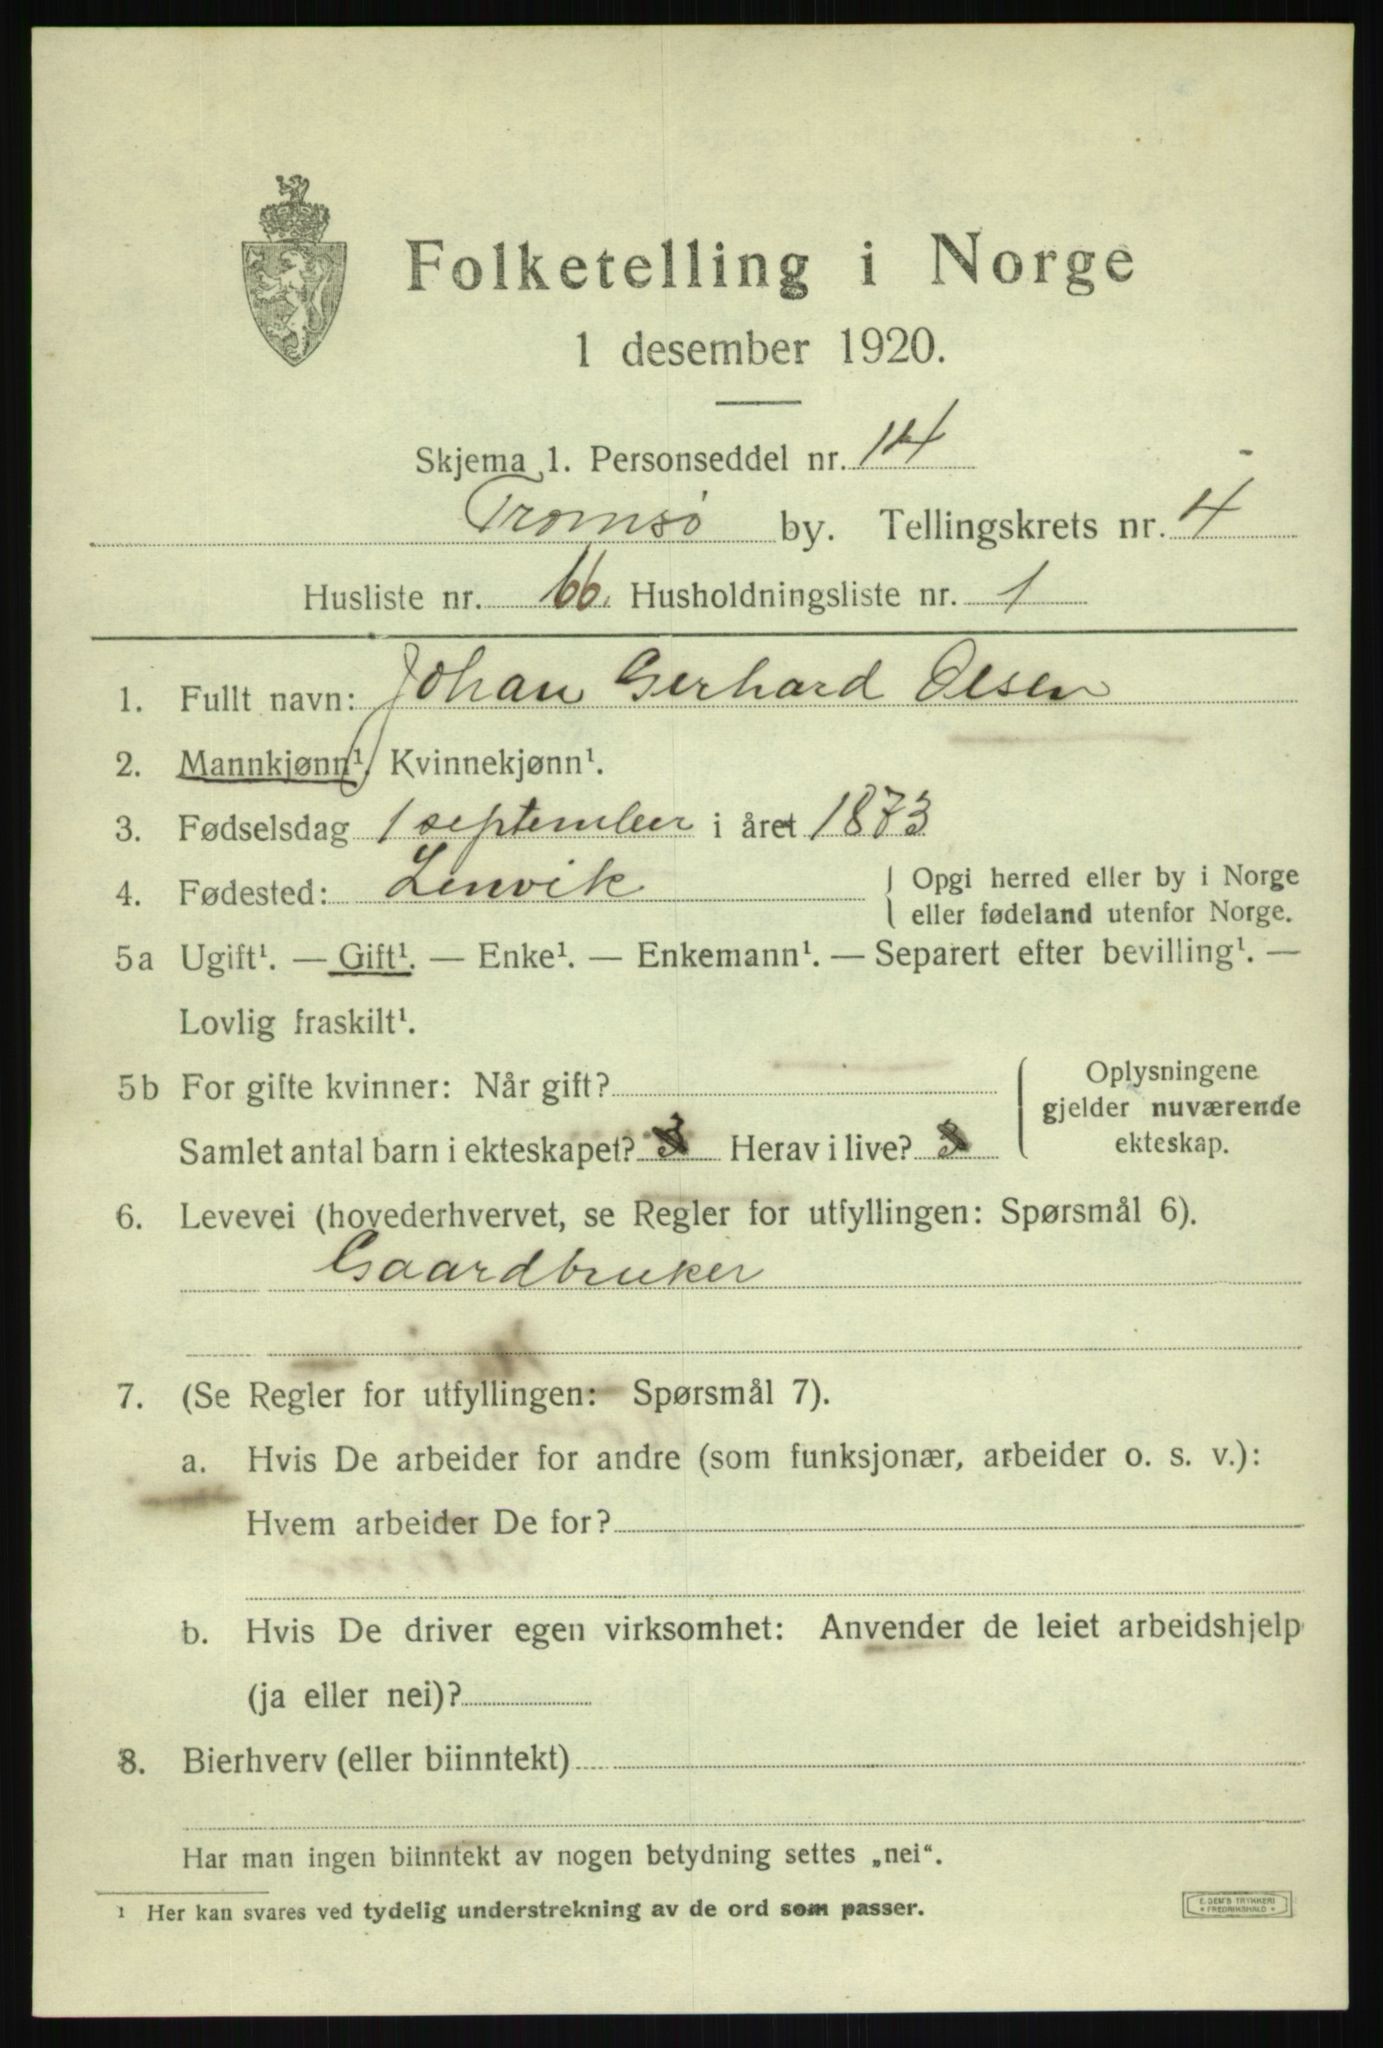 Folketelling i Norge
1 desember 1920.
Skjema 1. Personseddel nr. 14
Tromsø by. Tellingskrets nr. 4
Husliste nr. 66. Husholdningsliste nr. 1
1. Fullt navn: Johan Gerhard Olsen
2. Mannkjønn¹. Kvinnekjønn¹.
3. Fødselsdag 1 september i året 1873
4. Fødested: Lenvik { Opgi herred eller by i Norge
eller fødeland utenfor Norge.
5a Ugift¹. — Gift¹. — Enke¹. — Enkemann¹. — Separert efter bevilling¹. —
Lovlig fraskilt¹.
5b For gifte kvinner: Når gift? { Oplysningene
gjelder nuværende
Samlet antal barn i ekteskapet? 3 Herav i live? 3 ekteskap.
6. Levevei (hovederhvervet, se Regler for utfyllingen: Spørsmål 6).
Gaardbruker
7. (Se Regler for utfyllingen: Spørsmål 7).
a. Hvis De arbeider for andre (som funksjonær, arbeider o. s. v.):
Hvem arbeider De for?
b. Hvis De driver egen virksomhet: Anvender de leiet arbeidshjelp
(ja eller nei)?
8. Bierhverv (eller biinntekt)
Har man ingen biinntekt av nogen betydning settes „nei“.
¹ Her kan svares ved tydelig understrekning av de ord som passer.
E. SEM'S TRYKKERI
* FREDRIKSHALD *